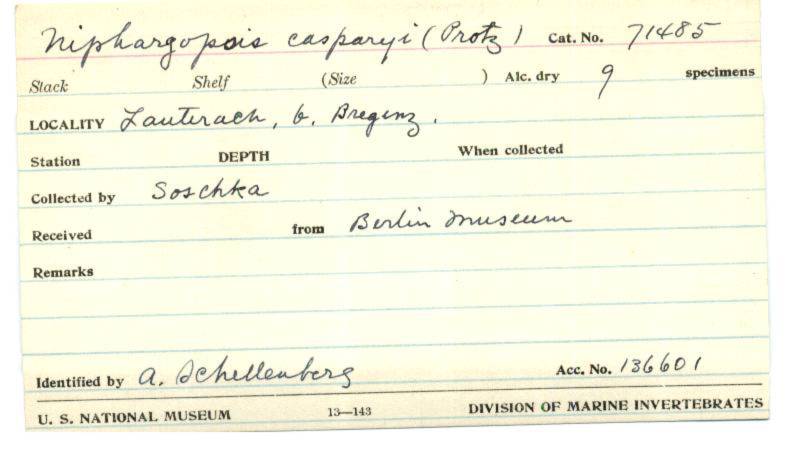 Niphargopsis casparyi (Protz) Cat. No. 71485
Stack Shelf (Size ) Alc. dry 9 specimens
LOCALITY Lauterach, b. Bregenz.
Station DEPTH When collected
Collected by Soschka
Received from Berlin Museum
Remarks
Identified by A. Schellenberg Acc. No. 136601
U. S. NATIONAL MUSEUM 13—143 DIVISION OF MARINE INVERTEBRATES